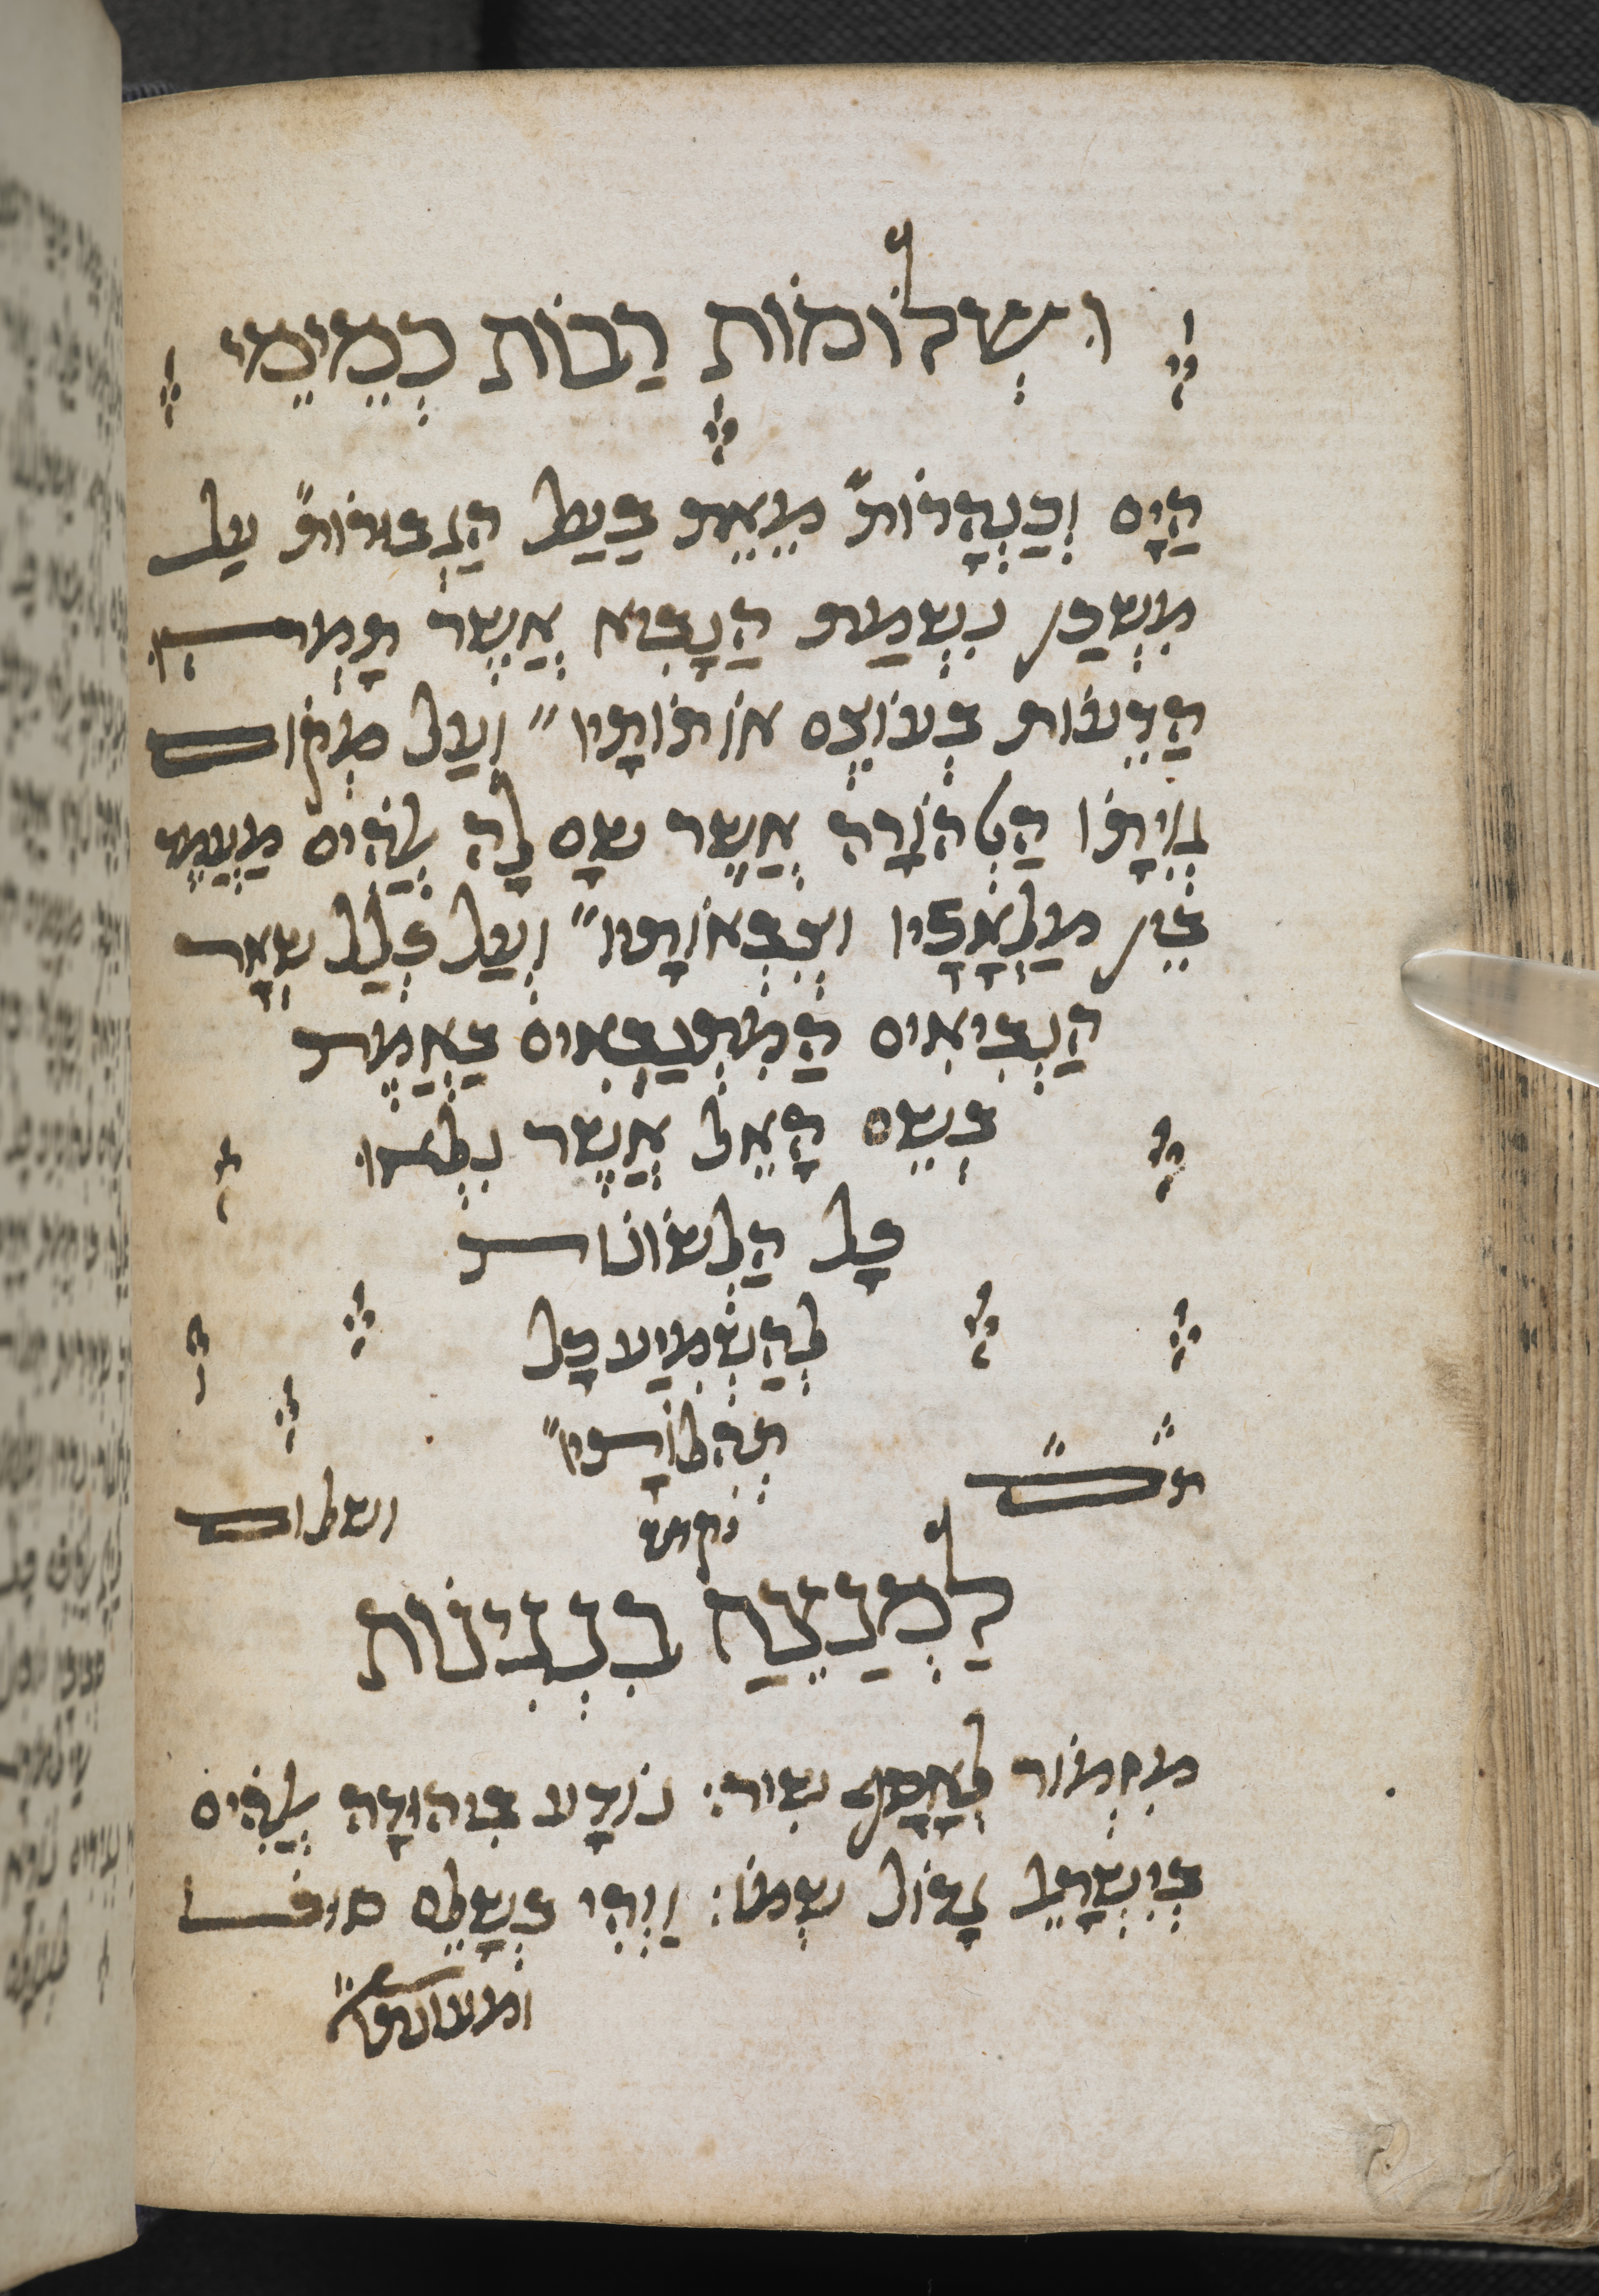 וּשְׁלוֹמוֹת רַבּוֹת כְּמֵימֵי
הַיָּם וְכַנְּהָרוֹת״ מֵאֵת בַּעַל הַגְּבוּרוֹת״ עַל
מִשְׁכַּן נִשְׁמַת הַנָּבִיא אֲשֶׁר תָּמְהוּ
הַדֵּעוֹת בְּעוֹצֶם אוֹתוֹתָיו״ וְעַל מְקוֹם
גְּוִיָּתוֹ הַטְּהוֹרָה אֲשֶׁר שָׂם לָהּ אֱלֹהִים מַעֲמָד
בֵּין מַלְאָכָיו וּצְבָאוֹתָיו״ וְעַל כְּלַל שְׁאָר
הַנְּבִיאִים הַמִּתְנַבְּאִים בֶּאֱמֶת
בְּשֵׁם הָאֵל אֲשֶׁר נִלְאוּ
כָּל הַלְּשׁוֹנוֹת
לְהַשְׁמִיעַ כָּל
תְּהִלּוֹתָיו״
תם ושלום
לַמְנַצֵּחַ בִּנְגִינוֹת
מִזְמוֹר לְאָסָף שִׁיר: נוֹדָע בִּיהוּדָה אֱלֹהִים
בְּיִשְׂרָאֵל גָּדוֹל שְׁמוֹ: וַיְהִי בְשָׁלֵם סוּכּוֹ
ומעונתו